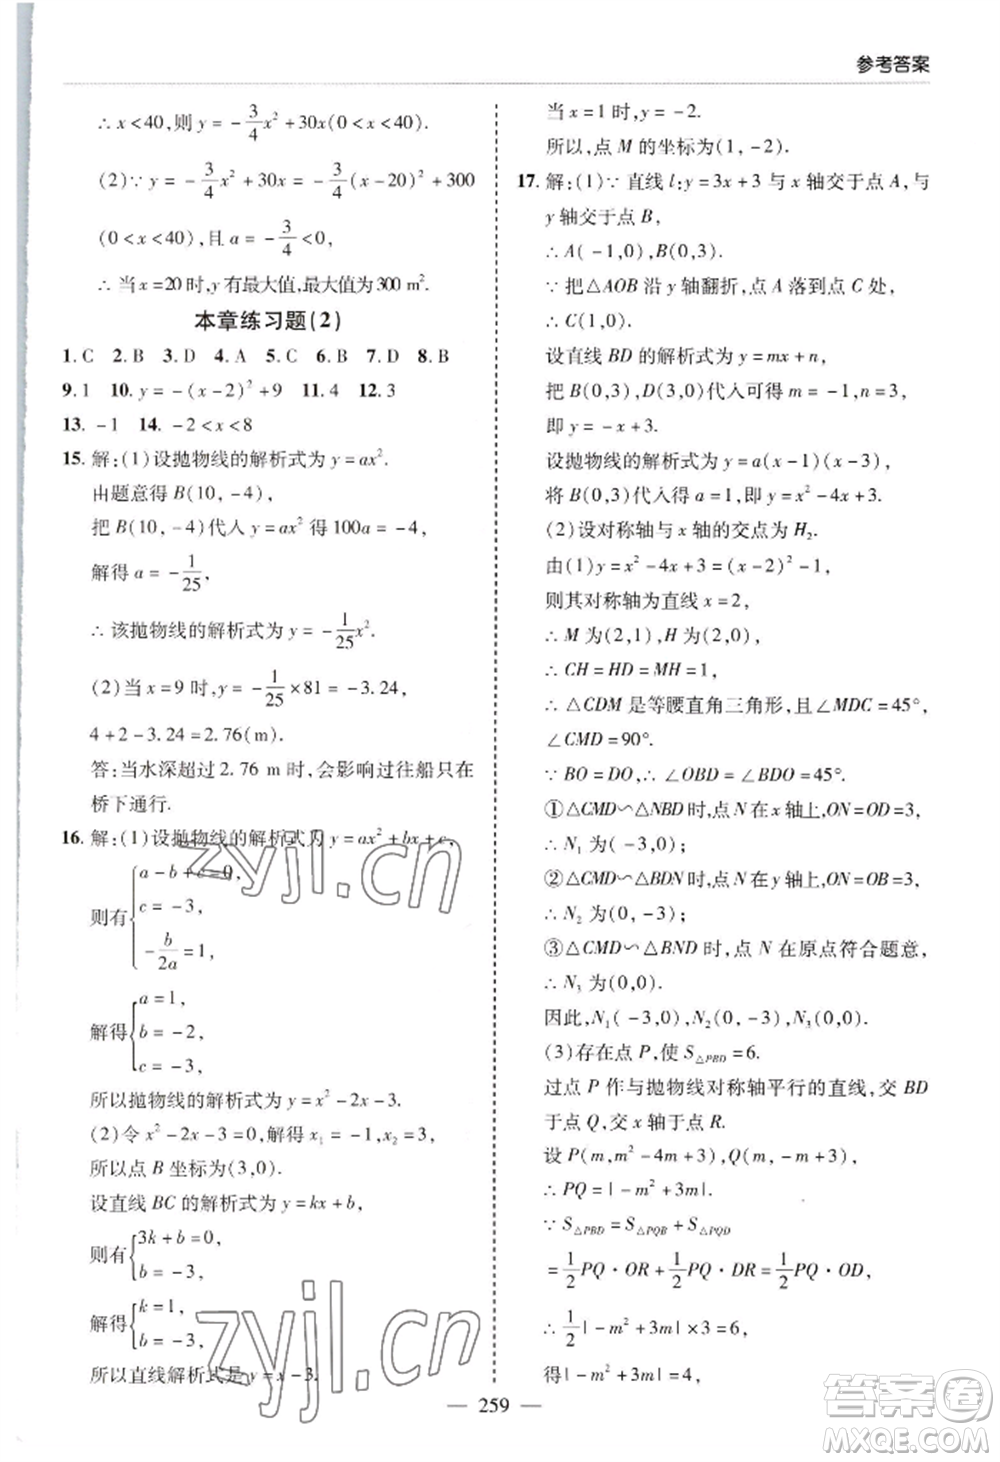 参考答案
∴ x<40,则 y=-3/4x²+30x(0<x<40).
(2)∵ y=-3/4x²+30x=-3/4(x-20)²+300
(0<x<40),且 a=-3/4<0,
∴ 当 x=20时,y 有最大值,最大值为300 m².
本章练习题(2)
1. C 2. B 3. D 4. A 5. C 6. B 7. D 8. B
9. 1 10. y=-(x-2)²+9 11. 4 12. 3
13. -1 14. -2<x<8
15. 解:(1)设抛物线的解析式为 y=ax².
由题意得 B(10,-4),
把 B(10,-4)代人 y=ax² 得 100a=-4,
解得 a=-1/25,
∴ 该抛物线的解析式为 y=-1/25x².
(2)当 x=9 时,y=-1/25×81=-3.24,
4+2-3.24=2.76(m).
答:当水深超过 2.76 m 时,会影响过往船只在
桥下通行.
16. 解:(1)设抛物线的解析式为 y=ax²+bx+c,
则有{a-b+c=0,
c=-3,
-b/2a=1,
解得{a=1,
b=-2,
c=-3,
所以抛物线的解析式为 y=x²-2x-3.
(2)令 x²-2x-3=0,解得 x₁=-1,x₂=3,
所以点 B 坐标为(3,0).
设直线 BC 的解析式为 y=kx+b,
则有{3k+b=0,
b=-3,
解得{k=1,
b=-3,
所以直线解析式是 y=x-3.
当 x=1 时,y=-2.
所以,点 M 的坐标为(1,-2).
17. 解:(1)∵ 直线 l:y=3x+3 与 x 轴交于点 A,与
y 轴交于点 B,
∴ A(-1,0),B(0,3).
∵ 把△AOB 沿 y 轴翻折,点 A 落到点 C 处,
∴ C(1,0).
设直线 BD 的解析式为 y=mx+n,
把 B(0,3),D(3,0)代人可得 m=-1,n=3,
即 y=-x+3.
设抛物线的解析式为 y=a(x-1)(x-3),
将 B(0,3)代人得 a=1,即 y=x²-4x+3.
(2)设对称轴与 x 轴的交点为 H₂.
由(1)y=x²-4x+3=(x-2)²-1,
则其对称轴为直线 x=2,
∴ M 为(2,1),H 为(2,0),
∴ CH=HD=MH=1,
∴ △CDM 是等腰直角三角形,且∠MDC=45°,
∠CMD=90°.
∵ BO=DO,∴ ∠OBD=∠BDO=45°.
①△CMD∽△NBD 时,点 N 在 x 轴上,ON=OD=3,
∴ N₁ 为(-3,0);
②△CMD∽△BDN 时,点 N 在 y 轴上,ON=OB=3,
∴ N₂ 为(0,-3);
③△CMD∽△BND 时,点 N 在原点符合题意,
∴ N₃ 为(0,0).
因此,N₁(-3,0),N₂(0,-3),N₃(0,0).
(3)存在点 P,使 S△PBD=6.
过点 P 作与抛物线对称轴平行的直线,交 BD
于点 Q,交 x轴于点 R.
设 P(m,m²-4m+3),Q(m,-m+3),
∴ PQ=|-m²+3m|.
∵ S△PBD=S△PQB+S△PQD
=1/2PQ·OR+1/2PQ·DR=1/2PQ·OD,
∴ 1/2|-m²+3m|×3=6,
得|-m²+3m|=4,
259
zyjl.cn
zyjl.cn
答案圈
MXQE.COM